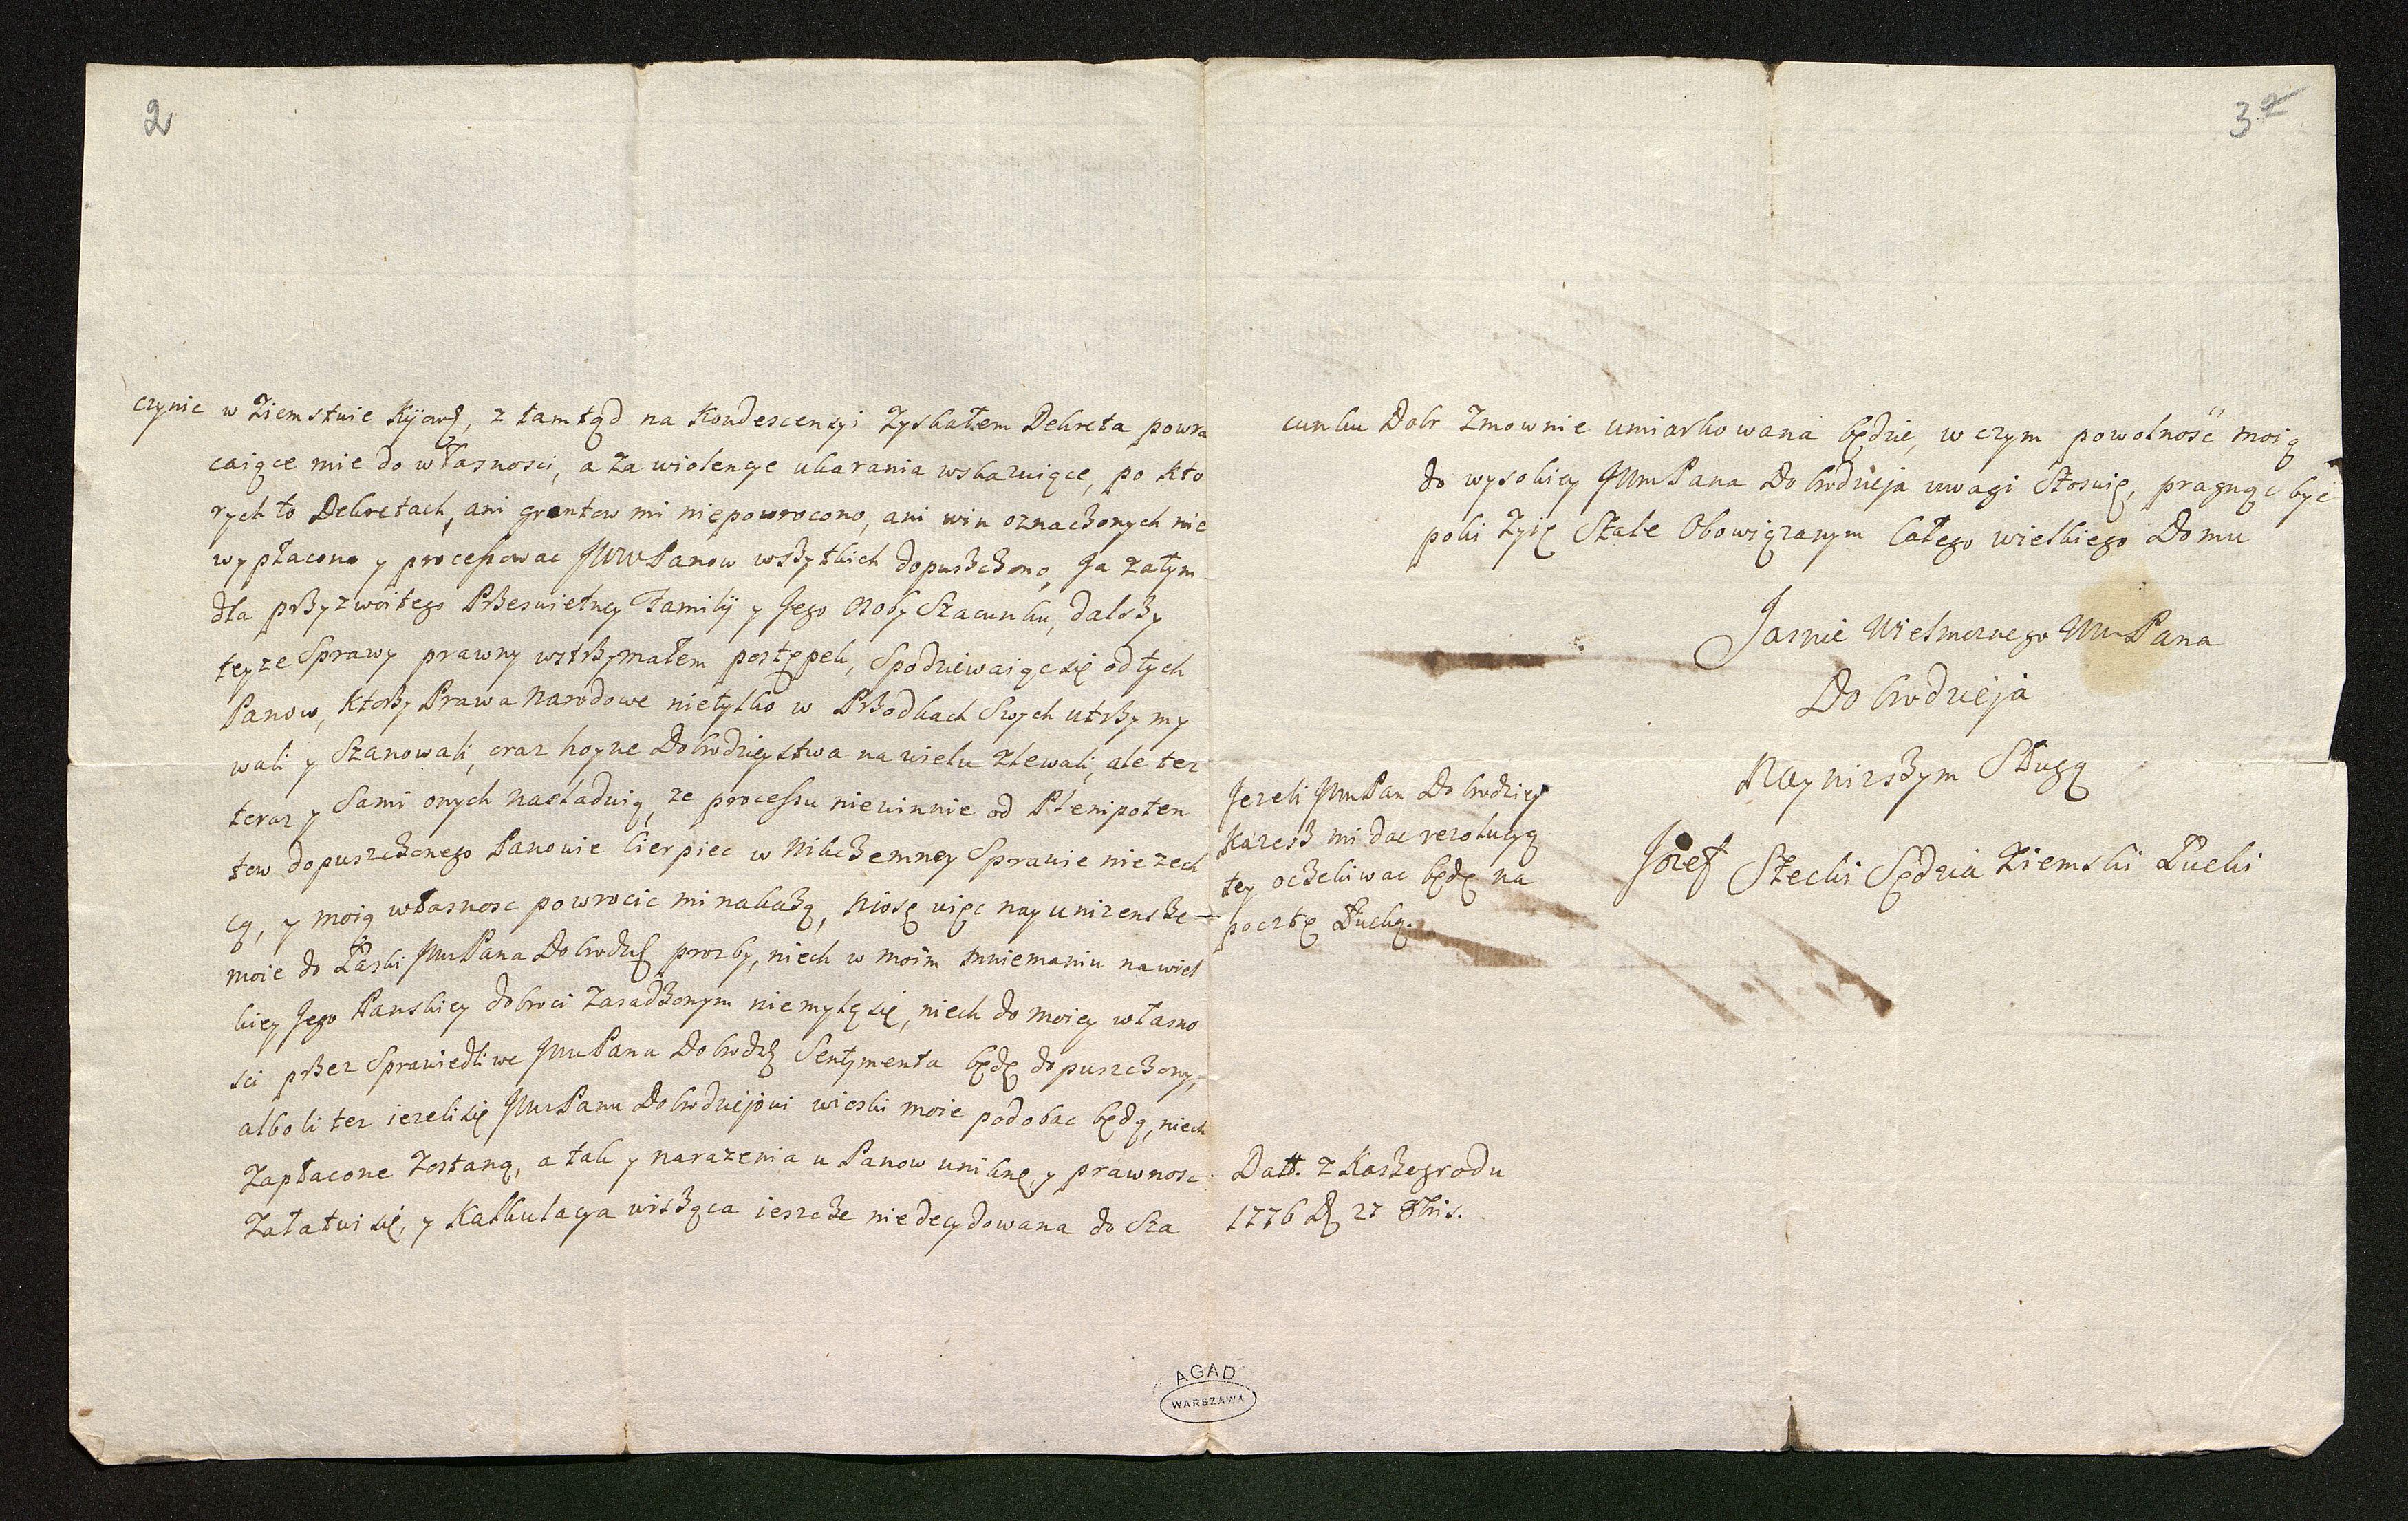 2
czynic w Ziemstwie Kÿows, z tamtąd na Kondescensyi Zyskałem Dekreta powra
caiące mie do własnosci, a za wiolencye ukarania wskazuiące, po kto
rych to Dekretach, ani grontow mi niepowrocono, ani win oznaczonych nie
wypłacono y processowac JWWPanow wszytkich dopuszczono, Ja zatym
dla przyzwoitego Przeswietney Familÿ y Jego Osoby Szacunku, dalszy
teyze Sprawy prawny wstrzymałem postępek, Spodziewaiąc się od tych
Panow, ktorzy Prawa Narodowe nietylko w Przodkach Swych utrzymy
wali y Szanowali, oraz hoyne Dobrodzieystwa na wielu Zlewali, ale tez
teraz y Sami onych nasladuią, ze processu niewinnie od Plenipoten
tow dopuszczonego Panowie Cierpiec w Nikczemney Sprawie niezech
cą, y moią własnosc powrocic mi nakażą, Niosę więc nayunizensze
moie do Łaski JWWPana Dobrodz prozby, niech w moim mniemaniu na wiel
kiey Jego Panskiey dobroci zasadzonym niemylę się, niech do moiey własno
sci przez Sprawiedliwe JWWPana Dobrodz Sentymenta będę dopuszczony,
alboli tez iezeli się JWWPanu Dobrodziejowi wioski moie podobac będą, niech
Zapłacone Zostaną, a tak y narazenia u Panow uniknę, y prawnosc
Załatwi się, y Kalkulacya wisząca ieszcze niedecydowana do Sza
3 2
cunku Dobr Zmownie umiarkowana będzie, w czym powolność moią
do wysokiey JWWPana Dobrodzieja uwagi Stosuię, pragnąc byc
poki Zyię Stale Obowiązanym Całego wielkiego Domu
Jasnie Wielmoznego WWPana
Dobrodzieja
Naynizszym Sługą
Jozef Stecki Sędzia Ziemski Łucki
Jezeli JWWPan Dobrodziey
Kazesz mi dac rezolucyą
tey oczekiwac będę na
pocztę Łucką.
Datt. z Koszogrodu
1776 D 27 8bris.
AGAD
WARSZAWA